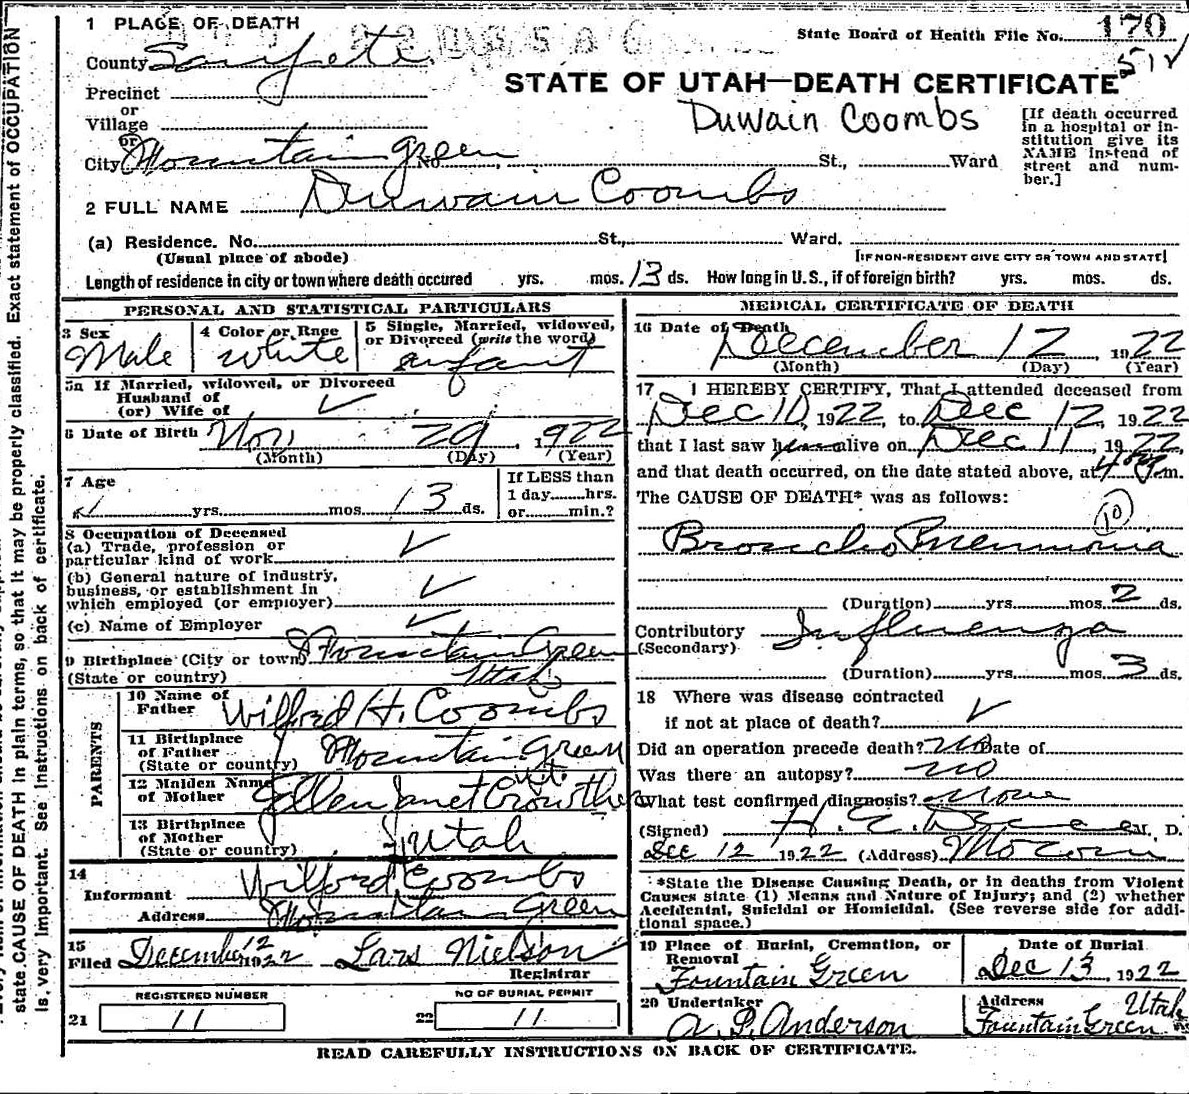 1 PLACE OF DEATH
State Board of Health File No. 170
County Sanpete
512
STATE OF UTAH—DEATH CERTIFICATE
Precinct
or
Village
Duwain Coombs
[If death occurred in a hospital or institution give its NAME instead of street and number.]
or
City Mountain Green No. St., Ward
2 FULL NAME Duwain Coombs
(a) Residence. No. St., Ward.
(Usual place of abode) [IF NON-RESIDENT GIVE CITY OR TOWN AND STATE]
Length of residence in city or town where death occured yrs. mos. 13 ds. How long in U.S., if of foreign birth? yrs. mos. ds.
PERSONAL AND STATISTICAL PARTICULARS
3 Sex Male
4 Color or Race White
5 Single, Married, widowed, or Divorced (write the word) infant
5a If Married, widowed, or Divorced
Husband of
(or) Wife of ✓
6 Date of Birth Nov 29, 1922
(Month) (Day) (Year)
7 Age yrs. mos. 13 ds.
If LESS than
1 day hrs.
or min.?
8 Occupation of Deceased
(a) Trade, profession or
particular kind of work ✓
(b) General nature of industry,
business, or establishment in
which employed (or employer) ✓
(c) Name of Employer ✓
9 Birthplace (City or town) Fountain Green
(State or country) Utah
PARENTS
10 Name of
Father Wilford H. Coombs
11 Birthplace
of Father Mountain Green
(State or country) Ut.
12 Maiden Name
of Mother Ellen Janet Crowther
13 Birthplace
of Mother Utah
(State or country)
14
Informant Wilford Coombs
Address Mountain Green
15
Filed December 12 1922 Lars Nielson
Registrar
REGISTERED NUMBER
21 11
NO OF BURIAL PERMIT
22 11
MEDICAL CERTIFICATE OF DEATH
16 Date of Death
December 12, 1922
(Month) (Day) (Year)
17 I HEREBY CERTIFY, That I attended deceased from
Dec 10, 1922, to Dec 12, 1922
that I last saw him alive on Dec 11, 1922,
and that death occurred, on the date stated above, at 4 m.
The CAUSE OF DEATH* was as follows:
10
Broncho Pneumonia
(Duration) yrs. mos. 2 ds.
Contributory Influenza
(Secondary)
(Duration) yrs. mos. 3 ds.
18 Where was disease contracted
if not at place of death? ✓
Did an operation precede death? no Date of
Was there an autopsy? no
What test confirmed diagnosis? None
(Signed) H. E. M. D.
Dec 12 1922 (Address) Moroni
*State the Disease Causing Death, or in deaths from Violent
Causes state (1) Means and Nature of Injury; and (2) whether
Accidental, Suicidal or Homicidal. (See reverse side for addi-
tional space.)
19 Place of Burial, Cremation, or
Removal
Fountain Green
Date of Burial
Dec 13, 1922
20 Undertaker
A. P. Anderson
Address Utah
Fountain Green
READ CAREFULLY INSTRUCTIONS ON BACK OF CERTIFICATE.
state CAUSE OF DEATH in plain terms, so that it may be properly classified. Exact statement of OCCUPATION
is very important. See instructions on back of certificate.